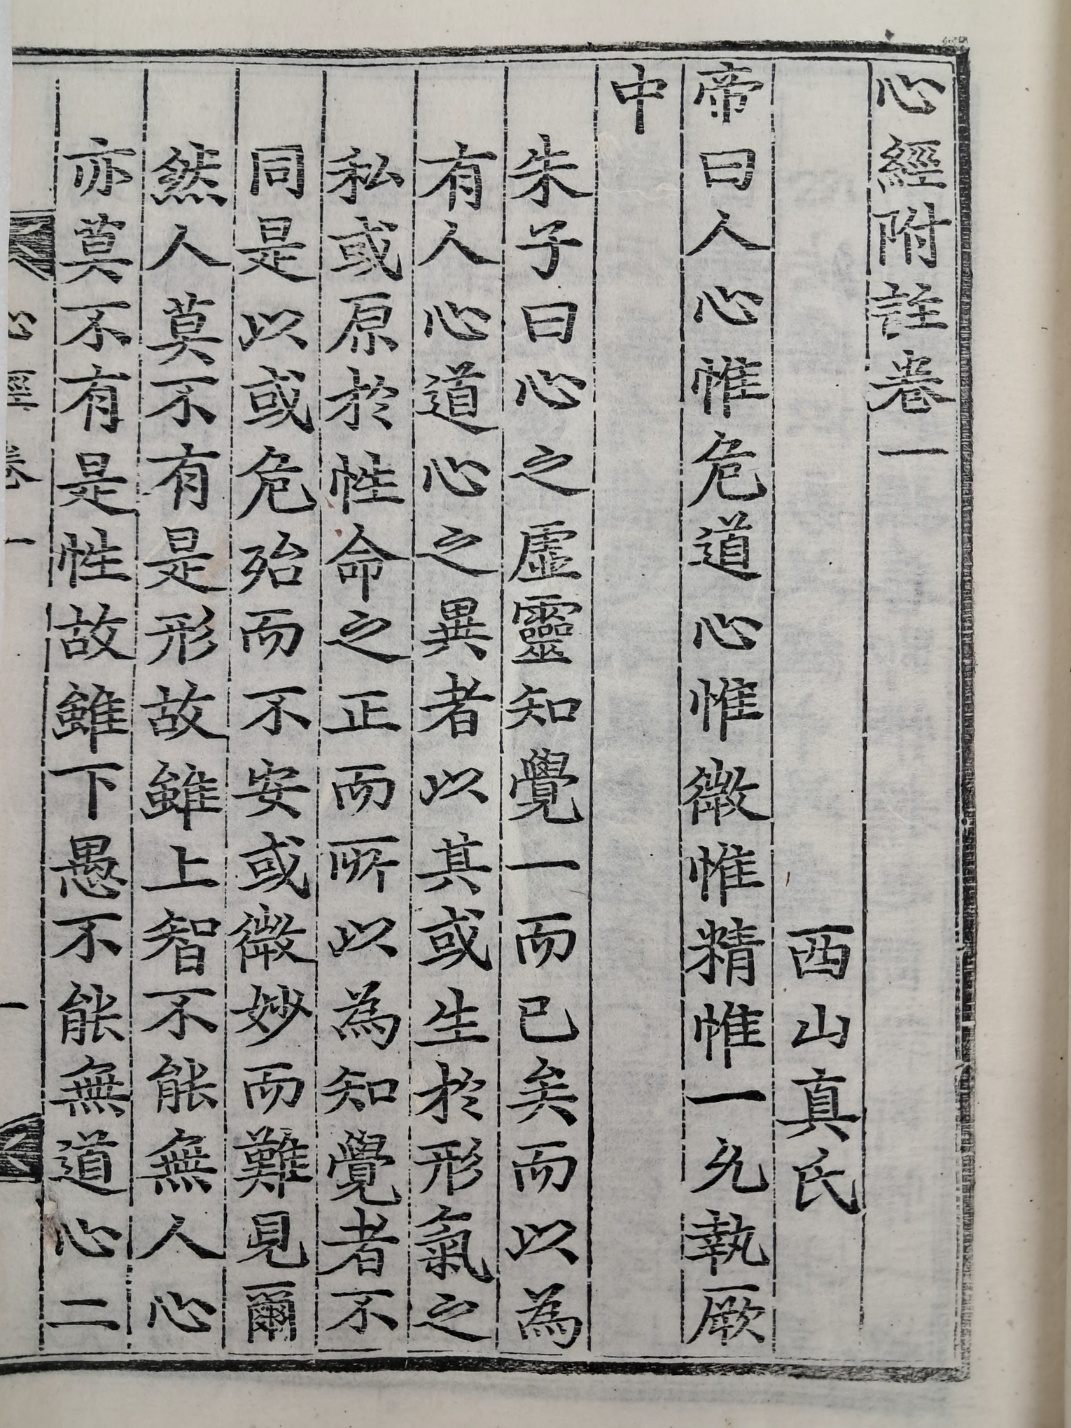 心經附註卷一
西山真氏
帝曰人心惟危道心惟微惟精惟一允執厥
中
朱子曰心之虛靈知覺一而已矣而以為
有人心道心之異者以其或生於形氣之
私或原於性命之正而所以為知覺者不
同是以或危殆而不安或微妙而難見爾
然人莫不有是形故雖上智不能無人心
亦莫不有是性故雖下愚不能無道心二
心經卷一
一